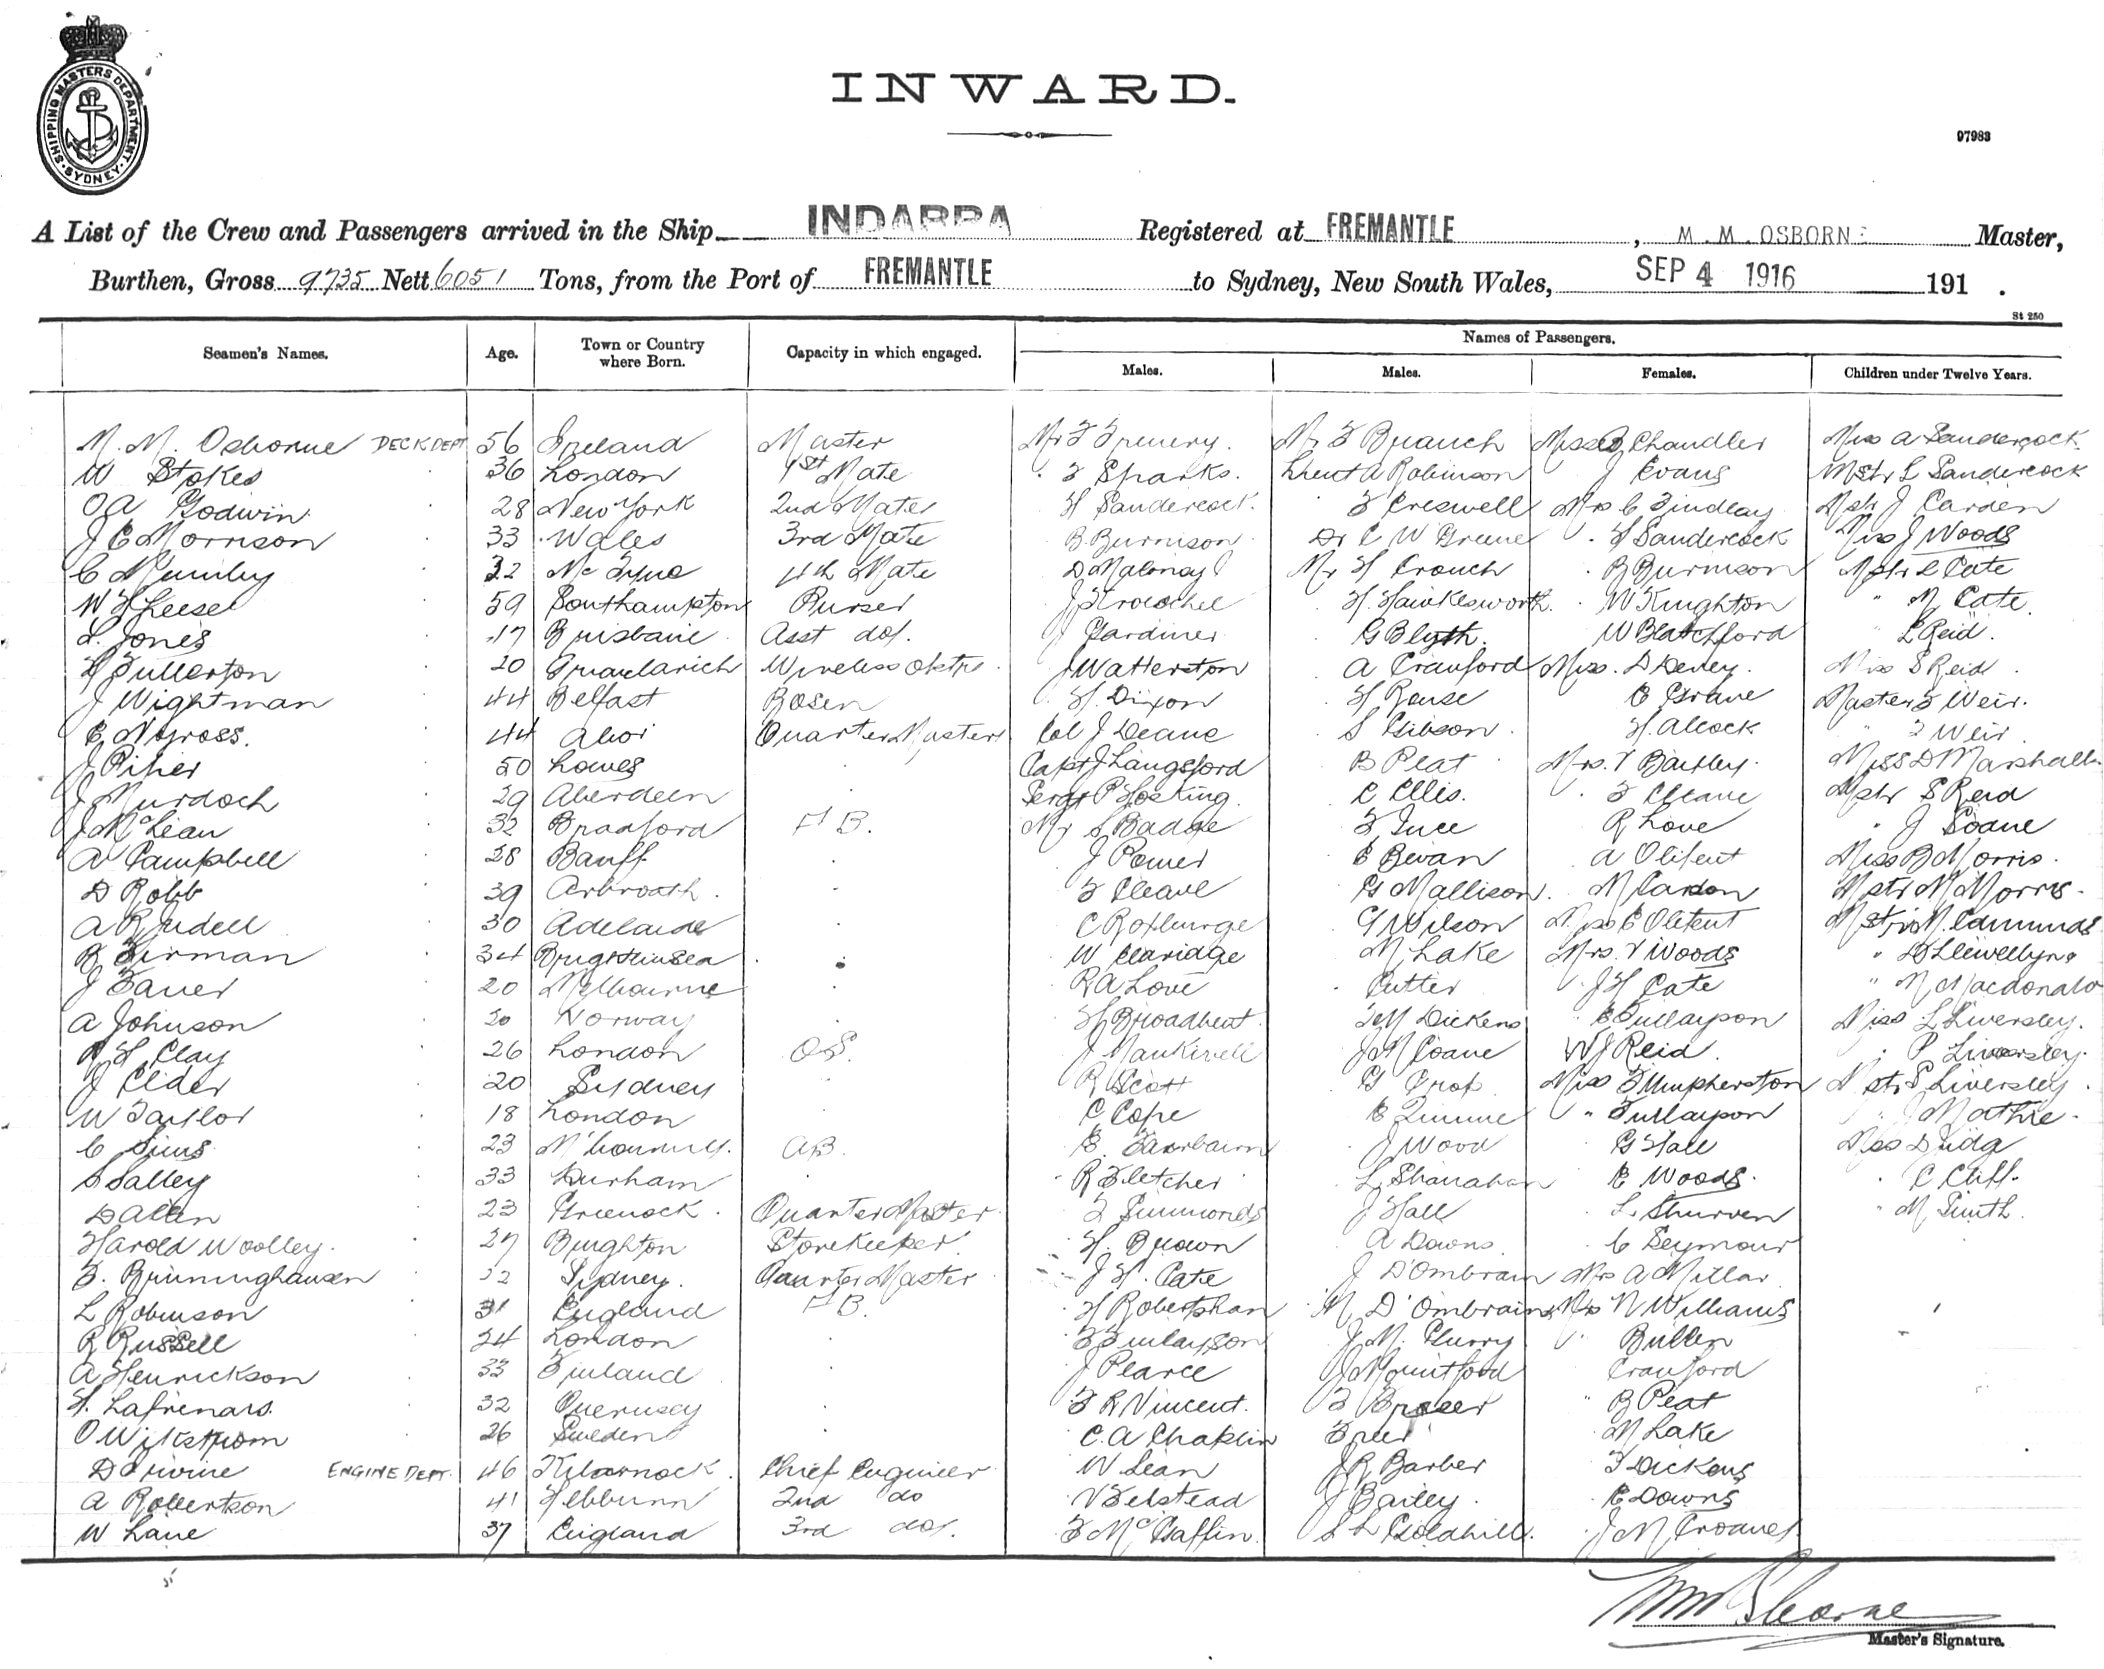 SHIPPING MASTERS DEPARTMENT. SYDNEY.
INWARD.
97983
A List of the Crew and Passengers arrived in the Ship INDARRA Registered at FREMANTLE, M. M. OSBORNE Master,
Burthen, Gross 9735 Nett 6051 Tons, from the Port of FREMANTLE to Sydney, New South Wales, SEP 4 1916 191 .
St 250
Seamen's Names. Age. Town or Country where Born. Capacity in which engaged. Names of Passengers.
Males. Males. Females. Children under Twelve Years.
M. M. Osborne DECK DEPT 56 Ireland Master Mr F Branch Chandler Miss A Sandercock
W Stokes 36 London 1st Mate F Sparks. Lieut A Robinson J Evans Mstr L Sandercock
O A Godwin 28 New York 2nd Mate H Sandercock. F Creswell Mrs C Findlay Mstr J Carden
J E Morrison 33 Wales 3rd Mate B Burnison Dr C W Greene H Sandercock Miss J Woods
C 32 4th Mate D Maloney Mr H Crouch B Burnison Mstr L Cate
W H Leese 59 Southampton Purser J H. Hawkesworth W Knighton " N Cate
L. Jones 17 Brisbane Asst do. J Gardiner G Blyth. W Blatchford " L Reid.
H Fullerton 20 Wireless J Watterston A Crawford Miss. D Miss S Reid
J Wightman 44 Belfast Bosen H. Dixon H Rouse E Master F Weir.
44 Quarter Master Col J Deane S Gibson H. Alcock " F Weir
J Piper 50 Lowes Capt J Langsford B Peat Mrs. V Bailey Miss D Marshall
J Murdoch 29 Aberdeen Sergt P Hosking. E Ellis. F Cleave Mstr S Reid
J McLean 32 Bradford A B. Mr S Badge F Tuce R Love " J Soane
A Campbell 28 Banff J Power E Bevan A Olifent Miss B Morris.
D Robb 39 Arbroath. F Cleave G Mallison. M Carson Mstr M Morris.
A R Judell 30 Adelaide C Roxburge G Wilson Miss E Olifent Mstr M. Edmunds
R Firman 34 Brightlinsea W Claridge M Lake Mrs. V Woods " D Llewellyn
J 20 Melbourne R A Love Cutter J H Cate " N Macdonald
A Johnson 20 Norway H Broadbent F M Dickens E Finlayson Miss L Liversley.
R H Clay 26 London O S. J J M Soane W J Reid. " P Liversley.
J Elder 20 Sydney R Scott G Miss F Umpherston Mstr S Liversley
W Taylor 18 London C Cope E " Finlayson " J Mathie.
C Sims 23 AB. E. Fairbairn J Wood G Hall Miss D Judg
S Salley 33 Durham R Fletcher L Shanahan E Woods. " C Cliff.
D Allen 23 Greenock. Quarter Master F Simmonds J Hall L Shurven " M Smith.
Harold Woolley. 27 Brighton Storekeeper. H. Brown A Downs C Seymour
F. Brunninghausen 32 Sydney. Quarter Master J H. Cate J D'Ombrain Mrs A Millar
L Robinson 31 England A B. H Robertshan M D'Ombrain Mrs N Williams
R Russell 24 London F Finlayson J M. Gurry " Bullen
A Henrickson 33 Finland J Pearce J Mountford Crawford
H. Lafrenais. 32 Guernsey F R Vincent. F " B Peat
O Wikstrom 26 Sweden C. A Chaplin M Lake
D Irvine ENGINE DEPT. 46 Kilmarnock. Chief Engineer W Lean J R Barber F Dickens
A Robertson 41 Hebburn 2nd do V Felstead J Bailey. E Downs
W Lane 37 England 3rd do. F McGaffin. S L Goldhill. J M
Master's Signature.